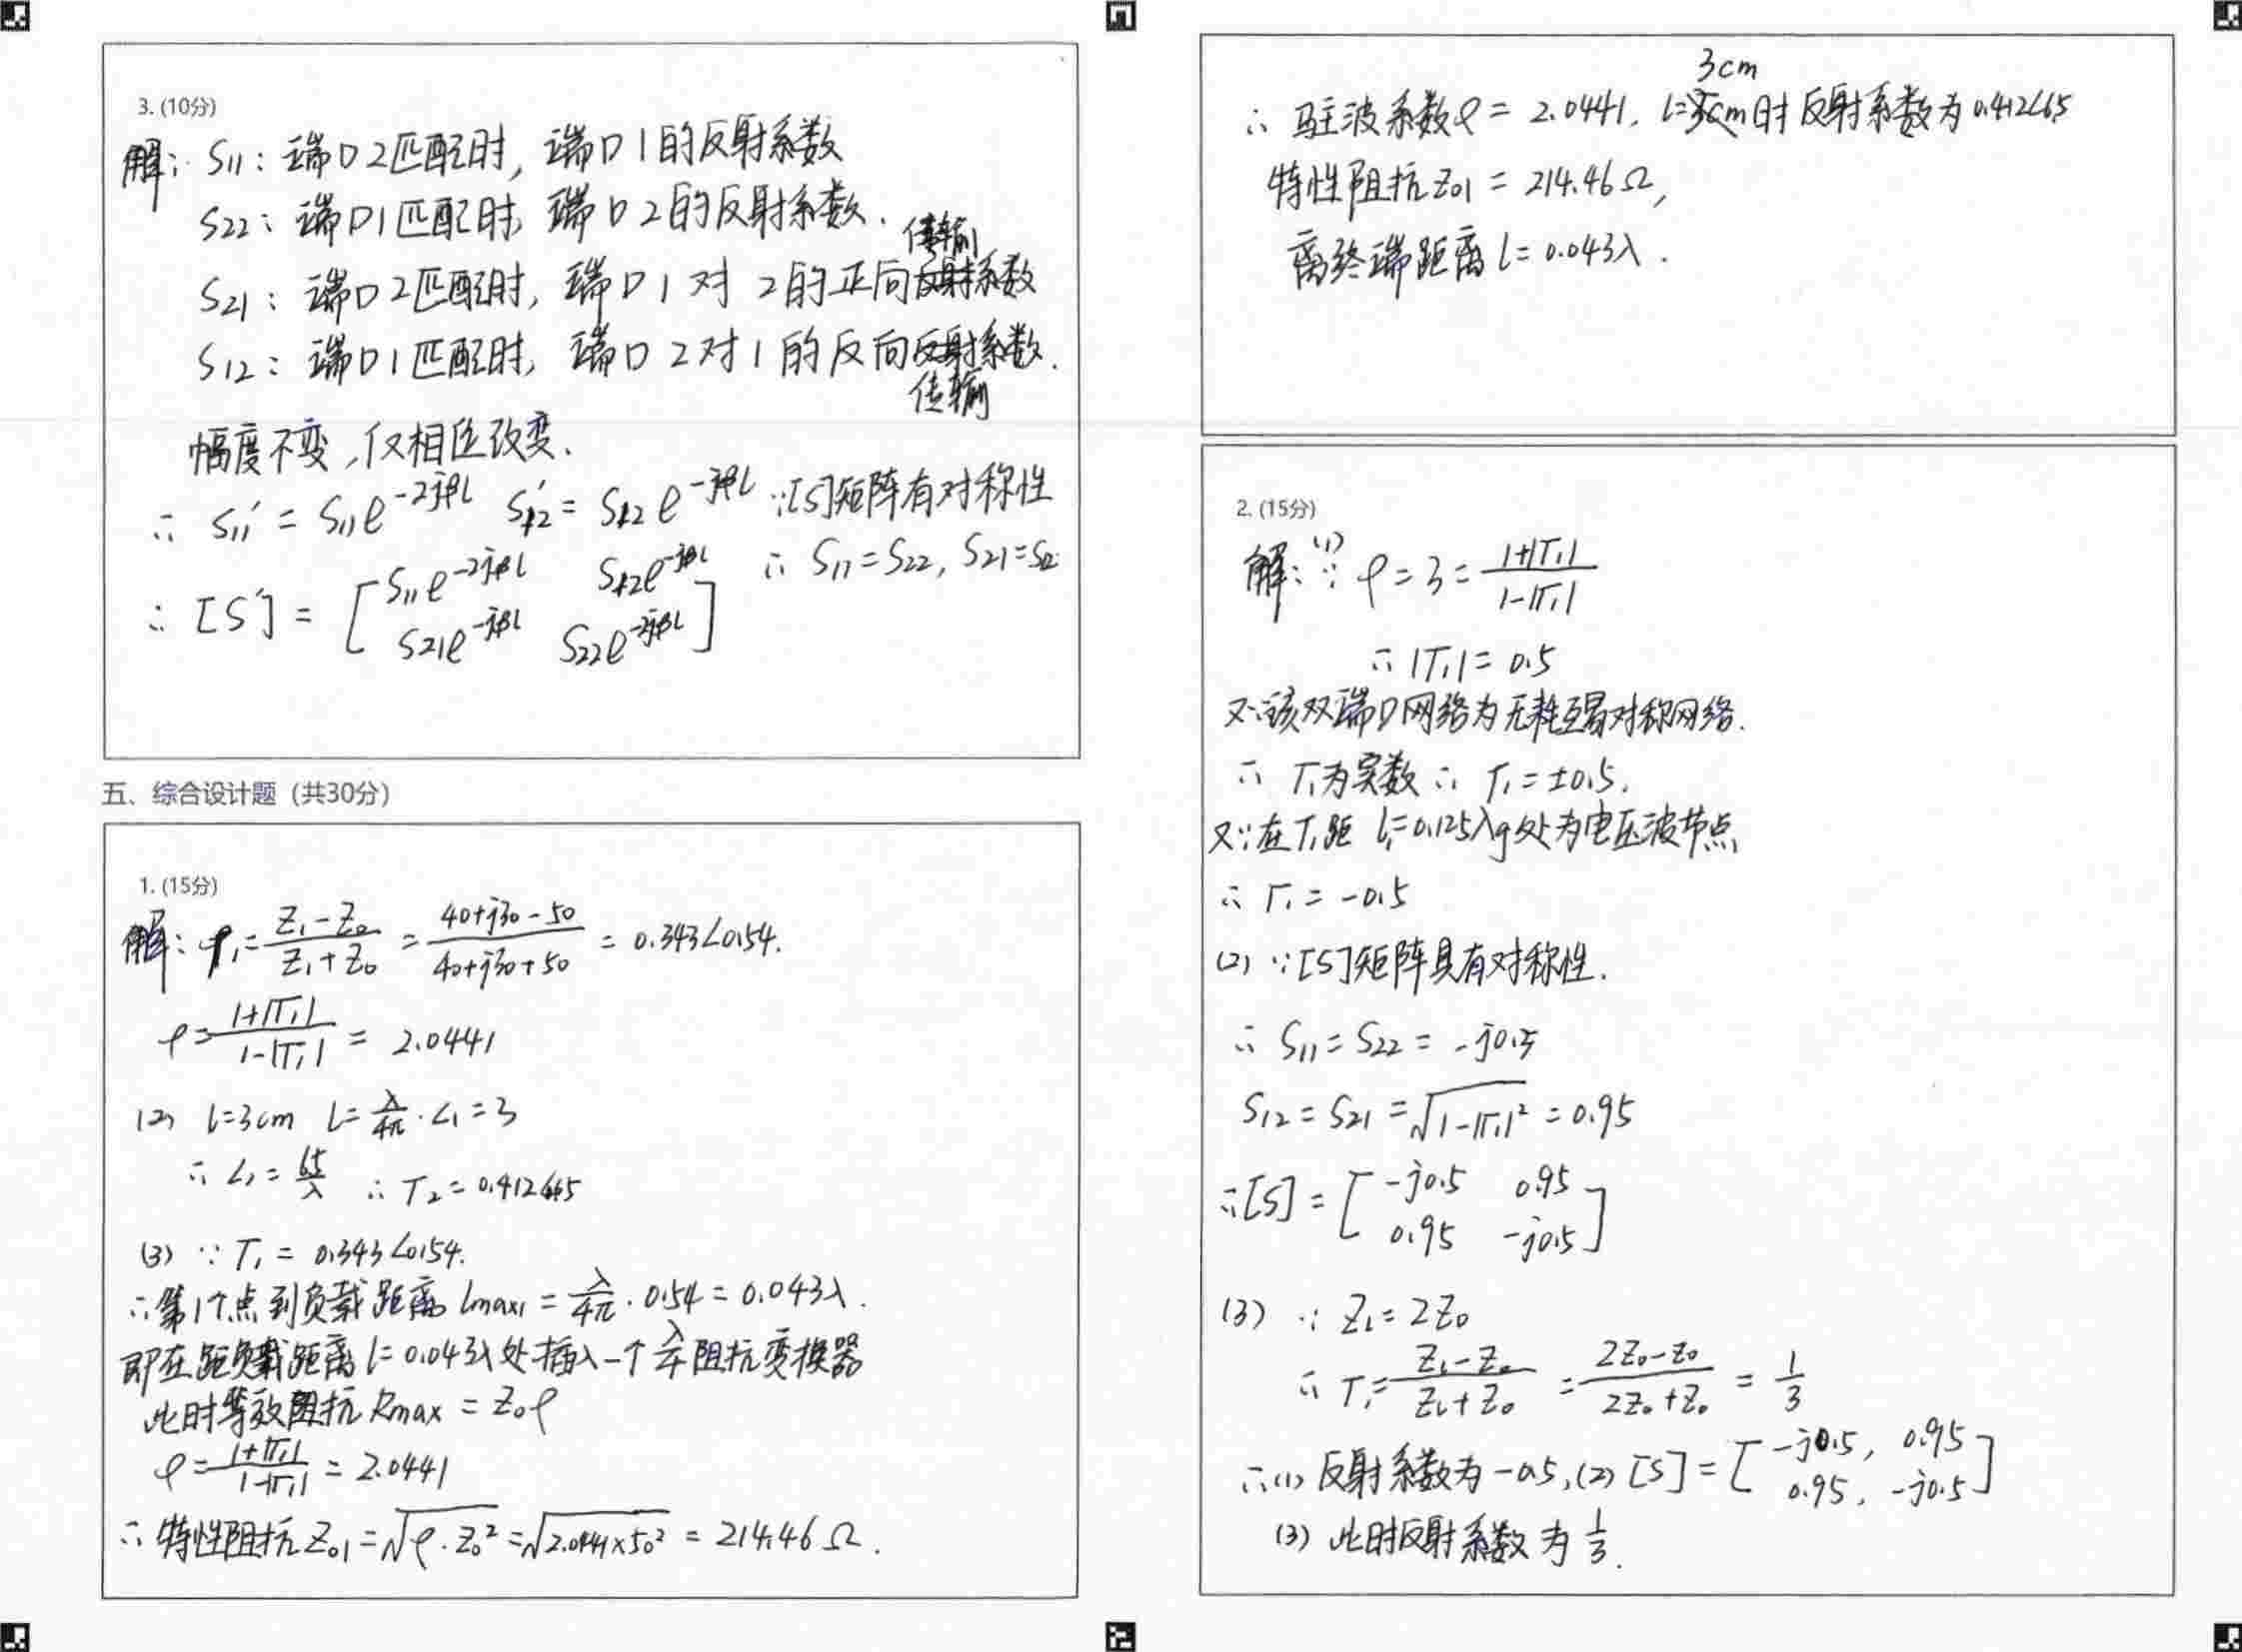 3. (10分)
解: S11: 端口2匹配时, 端口1的反射系数
S22: 端口1匹配时, 端口2的反射系数.
传输
S21: 端口2匹配时, 端口1对2的正向反射系数
S12: 端口1匹配时, 端口2对1的反向反射系数.
传输
幅度不变,仅相位改变.
∴ S11' = S11e^-2jβl S12' = S12e^-jβl ∵[S]矩阵有对称性
∴ S11=S22, S21=S12
∴ [S'] = [S11e^-2jβl S12e^-jβl
S21e^-jβl S22e^-2jβl]
五、综合设计题（共30分）
1. (15分)
解: Γ1 = (Z1-Z0)/(Z1+Z0) = (40+j30-50)/(40+j30+50) = 0.343∠0.54.
ρ = (1+|Γ1|)/(1-|Γ1|) = 2.0441
(2) l=3cm l=λ/4π·∠1=3
∴ Γ2=0.412∠65
(3) ∵ Γ1 = 0.343∠0.54.
∴第1个点到负载距离 lmax1 = λ/4π · 0.54 = 0.043λ.
即在距负载距离l=0.043λ处插入一个λ/4阻抗变换器
此时等效阻抗 Rmax = Z0ρ
ρ = (1+|Γ1|)/(1-|Γ1|) = 2.0441
∴ 特性阻抗Z01 = √(ρ·Z0²) = √(2.0441×50²) = 214.46Ω.
3cm
∴ 驻波系数ρ = 2.0441, l=cm时反射系数为0.412∠65
特性阻抗Z01 = 214.46Ω,
离终端距离l = 0.043λ.
2. (15分)
解: (1) ∵ ρ = 3 = (1+|Γ1|)/(1-|Γ1|)
∴ |Γ1| = 0.5
又∵该双端口网络为无耗互易对称网络.
∴ Γ1为实数 ∴ Γ1 = ±0.5.
又∵在T1距 l1=0.125λg处为电压波节点
∴ Γ1 = -0.5
(2) ∵[S]矩阵具有对称性.
∴ S11 = S22 = -j0.5
S12 = S21 = √(1-|Γ1|²) = 0.95
∴[S] = [-j0.5 0.95
0.95 -j0.5]
(3) ∵ Zl = 2Z0
∴ Γ1 = (Zl-Z0)/(Zl+Z0) = (2Z0-Z0)/(2Z0+Z0) = 1/3
∴(1) 反射系数为-0.5,(2) [S] = [-j0.5, 0.95
0.95, -j0.5]
(3) 此时反射系数为 1/3.